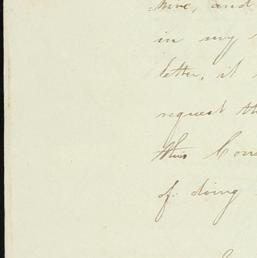 and
in my
letter, it
request th
this Com
of doing